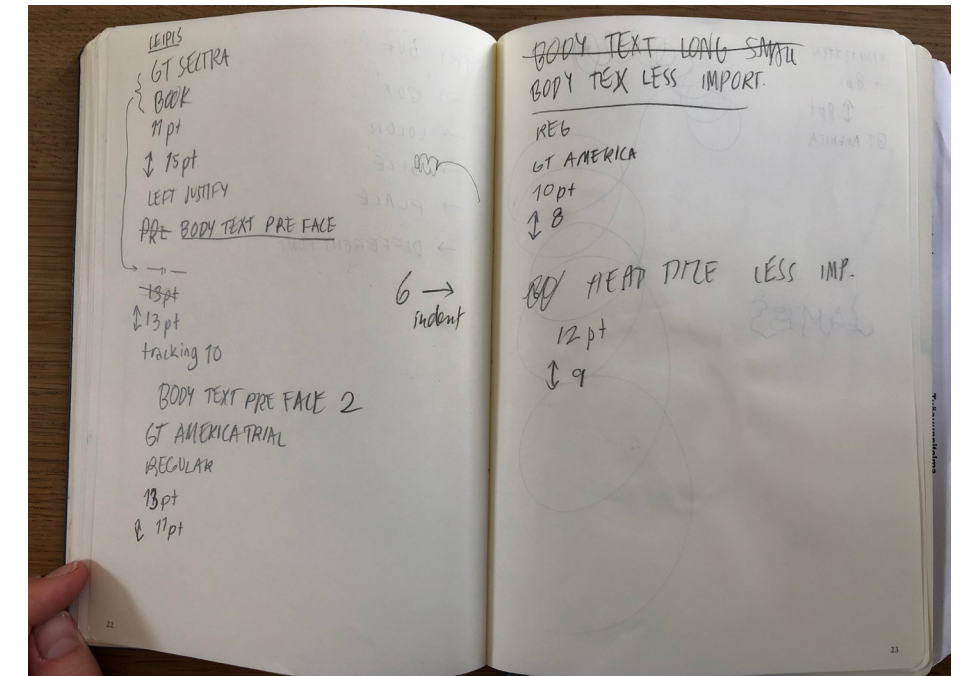 LEIPIS
GT SECTRA
BOOK
11 pt
↕ 15pt
LEFT JUSTIFY
PRE BODY TEXT PRE FACE
—〃—
13pt
↕ 13pt
tracking 10
BODY TEXT PRE FACE 2
GT AMERICA TRIAL
REGULAR
13pt
↕ 11pt
6 →
indent
22
BODY TEXT LONG SMALL
BODY TEX LESS IMPORT.
REG
GT AMERICA
10pt
↕ 8
HEAD TITLE LESS IMP.
12 pt
↕ 9
23